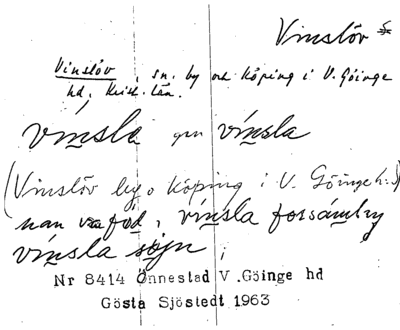 Vinslöv
Vinslöv sn. by och köping i V. Göinge
hd, Krist. län.
vínsla gm vínsla
(Vinslöv by o köping i V. Göinge h:d)
han va fód i vínsla forsámling
vínsla sojn
Nr 8414 Önnestad V. Göinge hd
Gösta Sjöstedt 1963